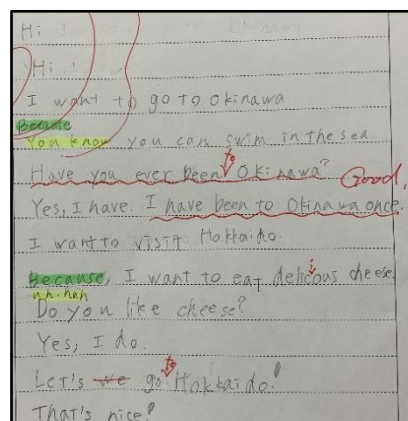 Hi
Hi
I want to go to Okinawa
Because
You know you can swim in the sea
to
Have you ever been Okinawa? Good,
Yes, I have. I have been to Okinawa once.
I want to visit Hokkaido.
Because, I want to eat delicous cheese
i
Do you like cheese?
Yes, I do.
to
Let's we go Hokkaido!
That's nice!